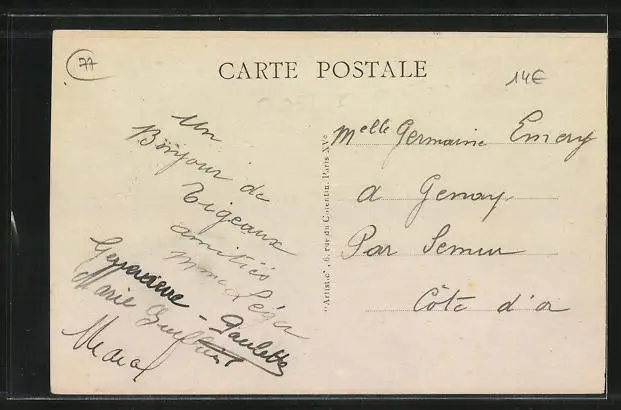 77
CARTE POSTALE
14€
Un
Bonjour de
Tigeaux
amitiés
Mme Léger
Geneviève - Paulette
Marie
"Artistic", 6, rue du Cotentin, Paris XVe
Melle Germaine Emery
a Genay
Par Semur
Côte d'or